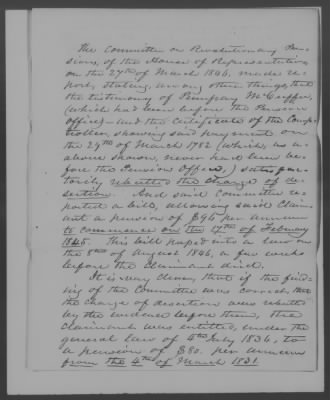 The Committee on Revolutionary Pen-
sions, of the House of Representatives
on the 27th of March 1846, made re-
port, stating, among other things, that
the testimony of
(which had been before the Pension
office) - and the Certificate of the Comp-
troller, showing said payment on
the 29th of March 1782 (which, as is
above shown, never had been be-
fore the Pension Office,) satisfac-
torily rebutted the charge of de-
sertion. And said Committee re-
ported a bill, allowing said Claim-
ant a pension of $96 per annum
to commence on the 17th of February
1845. This bill passed into a law on
the 8th of August 1846, a few weeks
before the claimant died.
It is very clear, that if the find-
ing of the Committee was correct, that
the charge of desertion was rebutted
by the evidence before them, the
claimant was entitled, under the
general law of 4th July 1836, to
a pension of $80. per annum
from the 4th of March 1831